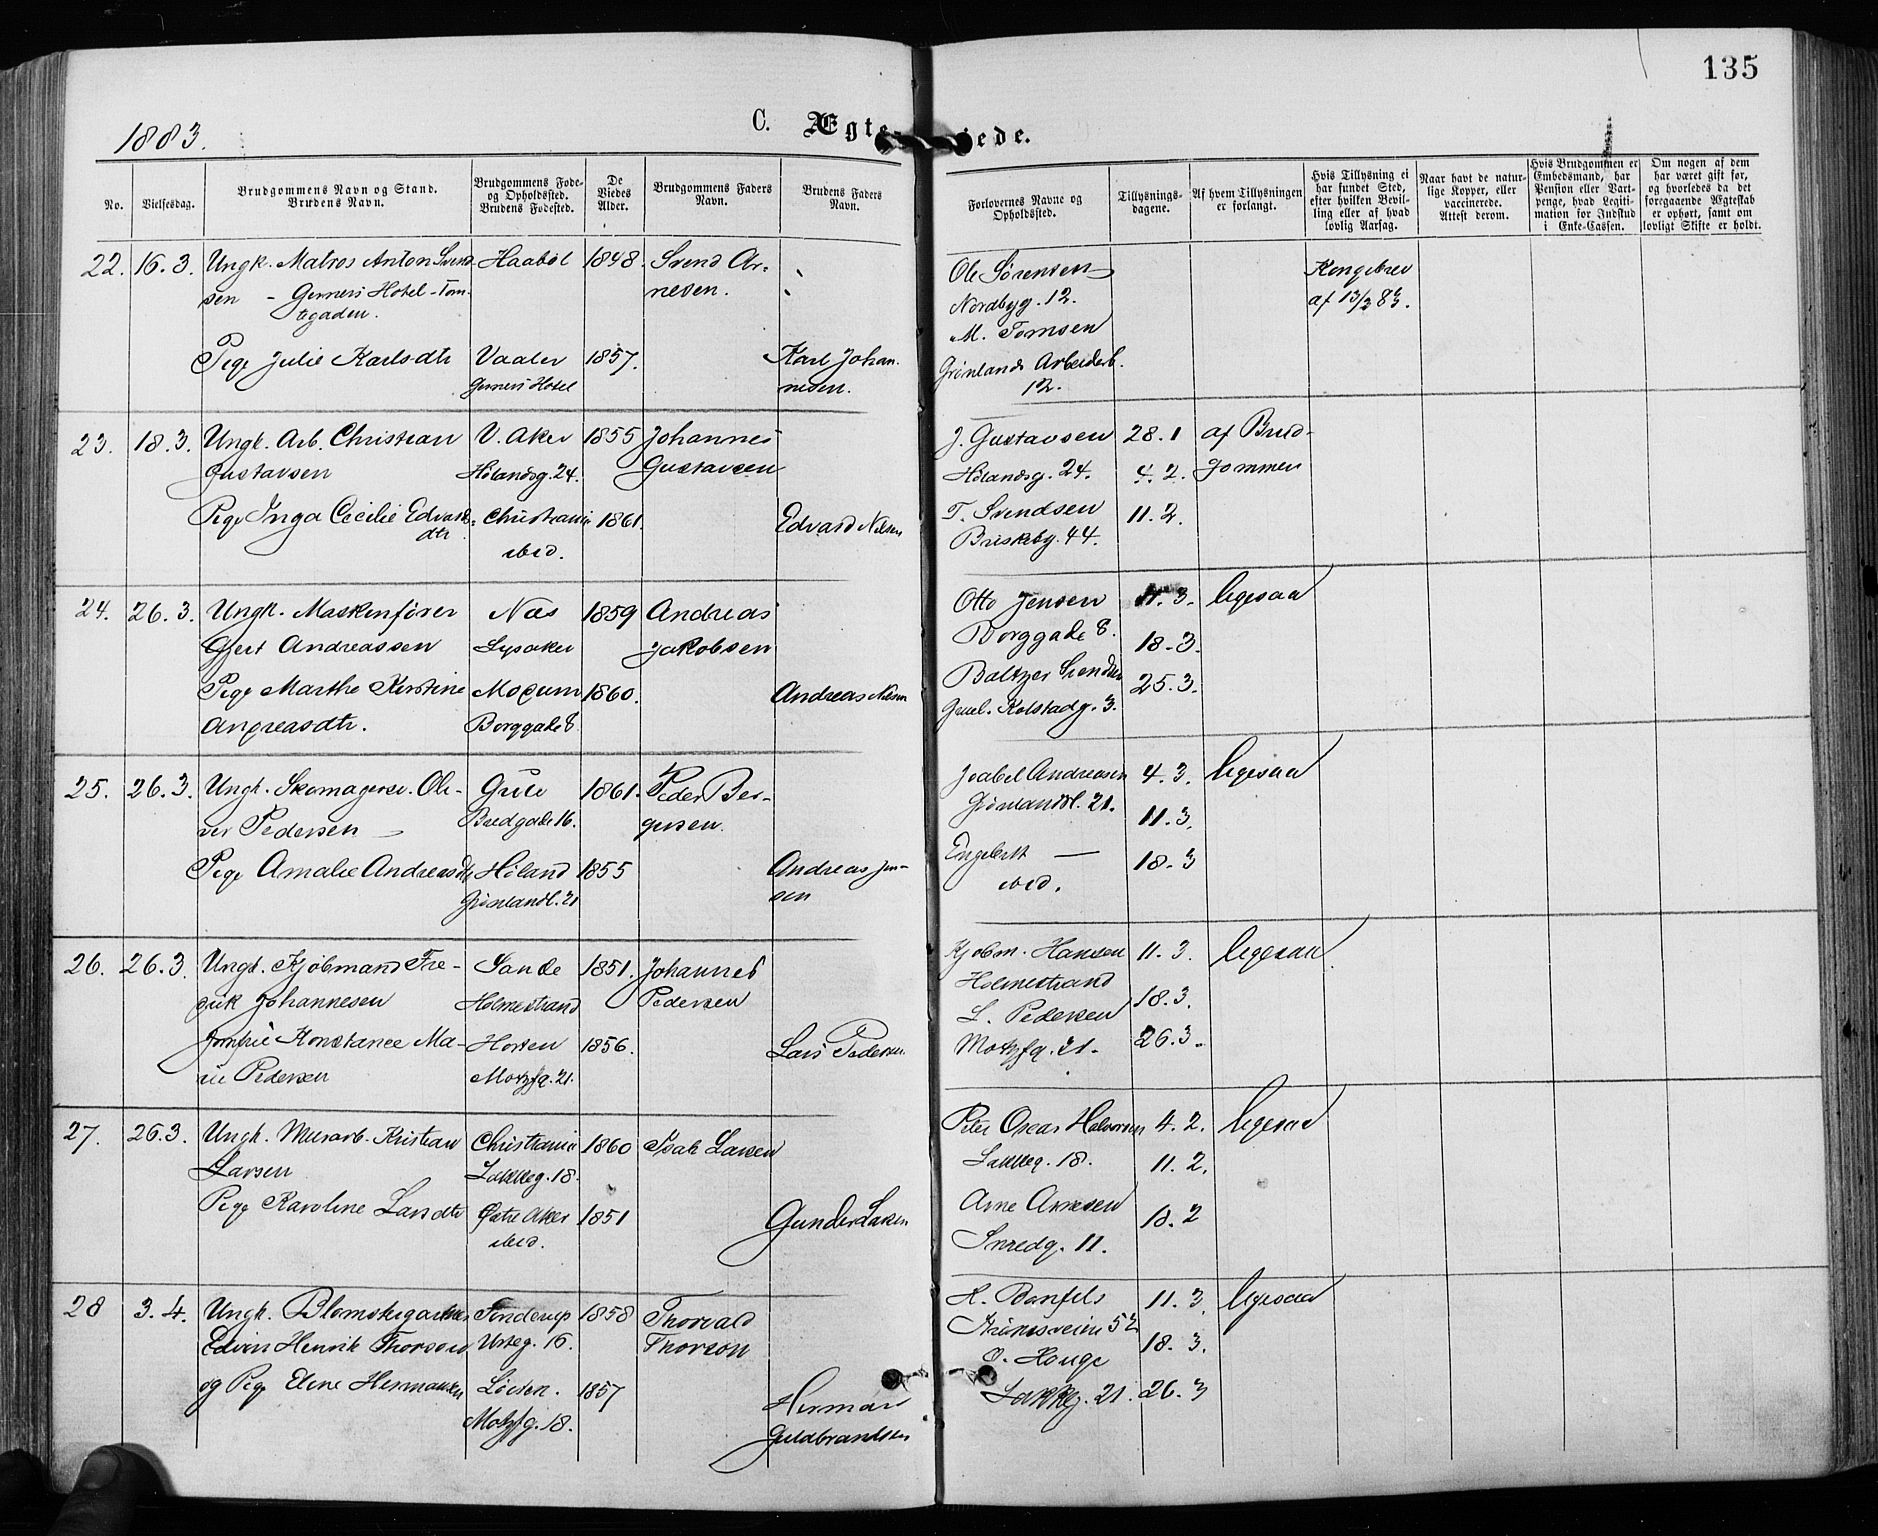 135
1883.
C. Ægte
iede.
No.
Vielsesdag.
Brudgommens Navn og Stand.
Brudens Navn.
Brudgommens Føde-
og Opholdssted.
Brudens Fødested.
De
Viedes
Alder.
Brudgommens Faders
Navn.
Brudens Faders
Navn.
Forlovernes Navne og
Opholdssted.
Tillysnings-
dagene.
Af hvem Tillysningen
er forlangt.
Hvis Tillysning ei
har fundet Sted,
efter hvilken Bevil-
ling eller af hvad
lovlig Aarsag.
Naar havt de natur-
lige Kopper, eller
vaccinerede.
Attest derom.
Hvis Brudgommen er
Embedsmand, har
Pension eller Vart-
penge, hvad Legiti-
mation for Indskud
i Enke-Cassen.
Om nogen af dem
har været gift før,
og hvorledes da det
foregaaende Ægteskab
er ophørt, samt om
lovligt Skifte er holdt.
22. 16. 3. Ungk. Matros Anton Svend- Haabøl 1848. Svend Ar-
sen - Gerners Hotel - Tom- nesen.
tegaden.
Pige Julie Karlsdtr Vaaler 1857. Karl Johan-
Gerners Hotel nesen.
Ole Sørensen Kongebrev
Nordbyg. 12. af 13/3 83.
M. Tomsen
Grønlands Arbeiderb.
12.
23. 18. 3. Ungk. Arb. Christian V. Aker 1855 Johannes
Gustavsen Hølandsg. 24. Gustavsen
Pige Inga Cecilie Edvards- Christiania 1861. Edvard Nilsen
dtr ibid.
J. Gustavsen 28. 1 af Brud-
Hølandsg. 24. 4. 2. gommen
T. Svendsen 11. 2.
Briskeby. 44.
24. 26. 3. Ungk. Maskinfører Næs 1859 Andreas
Gjert Andreassen Lysaker Jakobsen
Pige Marthe Kirstine Modum 1860. Andreas Nilsen
Andreasdtr. Borggade 8
Otto Jensen 11. 3. ligesaa
Borggade 8. 18. 3.
Baltzer Svendsen 25. 3.
Kolstadg. 3.
25. 26. 3. Ungk. Skomagersv. Oli- 1861. Peder Ber-
ver Pedersen Bredgade 16. gersen.
Pige Amalie Andreasdtr Høland 1855 Andreas Jen-
Grønlandsl. 21 sen
Isabel Andreasen 4. 3. ligesaa
Grønlandsl. 21. 11. 3.
Engebret — 18. 3
ibid.
26. 26. 3. Ungk. Kjøbmand Fre- Sande 1851. Johannes
drik Johannesen Holmestrand Pedersen
Jomfru Konstance Ma- Horten 1856. Lars Pedersen
rie Pedersen Motzfg. 21.
Kjøbm. Hansen 11. 3. ligesaa
Holmestrand 18. 3.
L. Pedersen
Motzfg. 21. 26. 3.
27. 26. 3. Ungk. Murarb. Kristian Christiania 1860 Isak Larsen
Larsen Lakkeg. 18.
Pige Karoline Larsdtr Østre Aker 1851 Gunder Larsen
ibid.
Peter Oscar Halvorsen 4. 2. ligesaa
Lakkeg. 18. 11. 2.
Arne Arnesen 18. 2
Smedg. 11.
28 3. 4. Ungk. Blomstergartner Tønderup 1858 Thorvald
Edvin Henrik Thorson Urteg. 16. Thorson
og Pige Eline Hermansen Løiten. 1857 Herman
Motzfg. 18. Guldbrandsen
H. Banfels 11. 3. ligesaa
52 18. 3.
O. Hauge
Lakkeg. 21. 26. 3